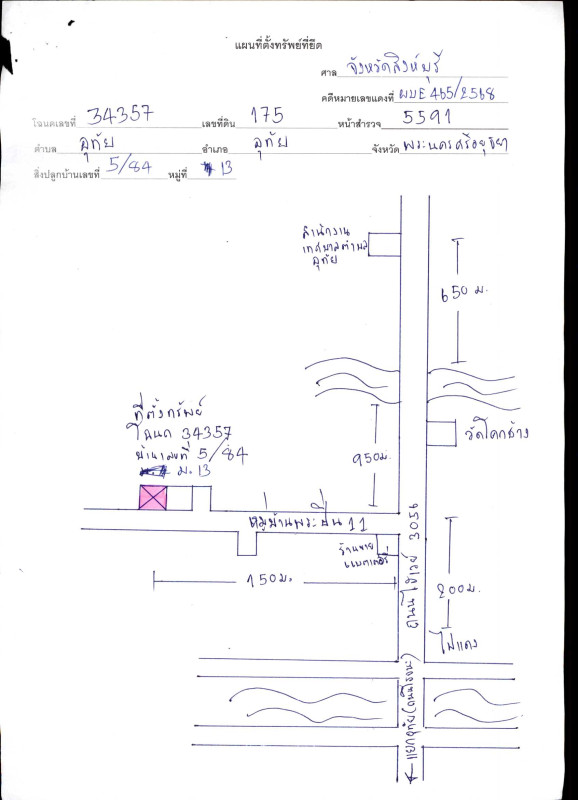 แผนที่ตั้งทรัพย์ที่ยึด
ศาล จังหวัดสิงห์บุรี
คดีหมายเลขแดงที่ ผบE465/2568
โฉนดเลขที่ 34357 เลขที่ดิน 175 หน้าสำรวจ 5591
ตำบล อุทัย อำเภอ อุทัย จังหวัด พระนครศรีอยุธยา
สิ่งปลูกบ้านเลขที่ 5/84 หมู่ที่ 13
สำนักงาน
เทศบาลตำบล
อุทัย
650 ม.
ที่ตั้งทรัพย์
โฉนด 34357
บ้านเลขที่ 5/84
ม.13
950 ม.
วัดโคกช้าง
หมู่บ้านพระปิ่น 11
ร้านขาย
แบตเตอรี่
ถนนไฮเวย์ 3056
150 ม.
200 ม.
ไฟแดง
แยกอุทัย (ถนนโรจนะ)